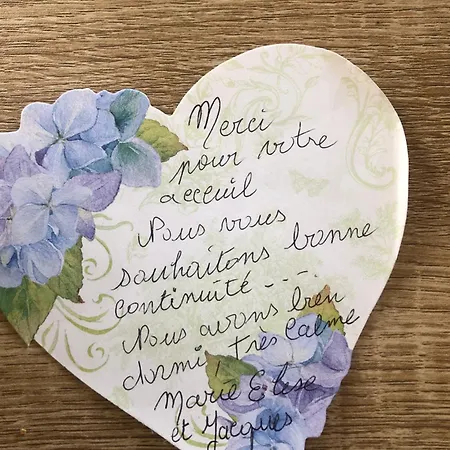 Merci
pour votre
acceuil
Nous vous
souhaitons bonne
continuité ----
Nous avons bien
dormi, très calme
Marie Elise
et Jacques